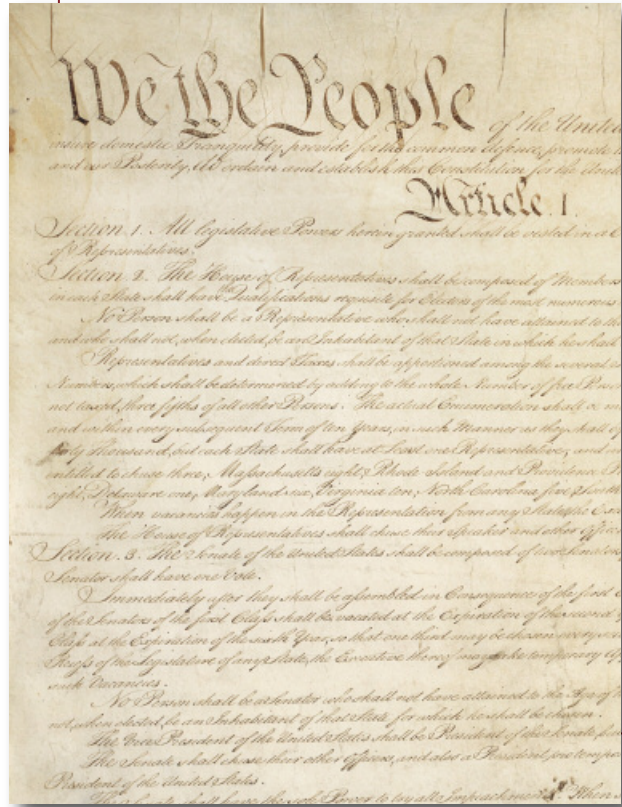 We the People of the United
insure domestic Tranquility, provide for the common defence, promote t
and our Posterity, do ordain and establish this Constitution for the Unit
Article. I.
Section. 1. All legislative Powers herein granted shall be vested in a C
of Representatives.
Section. 2. The House of Representatives shall be composed of Members
in each State shall have the Qualifications requisite for Electors of the most numerous
No Person shall be a Representative who shall not have attained to the
and who shall not, when elected, be an Inhabitant of that State in which he shall
Representatives and direct Taxes shall be apportioned among the several
Numbers, which shall be determined by adding to the whole Number of free Perso
not taxed, three fifths of all other Persons. The actual Enumeration shall be m
and within every subsequent Term of ten Years, in such Manner as they shall by
thirty Thousand, but each State shall have at Least one Representative; and
entitled to chuse three, Massachusetts eight, Rhode Island and Providence
eight, Delaware one, Maryland six, Virginia ten, North Carolina five, South
When vacancies happen in the Representation from any State, the Exec
The House of Representatives shall chuse their Speaker and other Officer
Section. 3. The Senate of the United States shall be composed of two Senators
Senator shall have one Vote.
Immediately after they shall be assembled in Consequence of the first
of the Senators of the first Class shall be vacated at the Expiration of the second
Class at the Expiration of the sixth Year, so that one third may be chosen every
Recess of the Legislature of any State, the Executive thereof may make temporary Ap
such Vacancies.
No Person shall be a Senator who shall not have attained to the Age of t
not, when elected, be an Inhabitant of that State for which he shall be chosen.
The Vice President of the United States shall be President of the Senate, but
The Senate shall chuse their other Officers, and also a President pro tempo
President of the United States.
The Senate shall have the sole Power to try all Impeachments. When